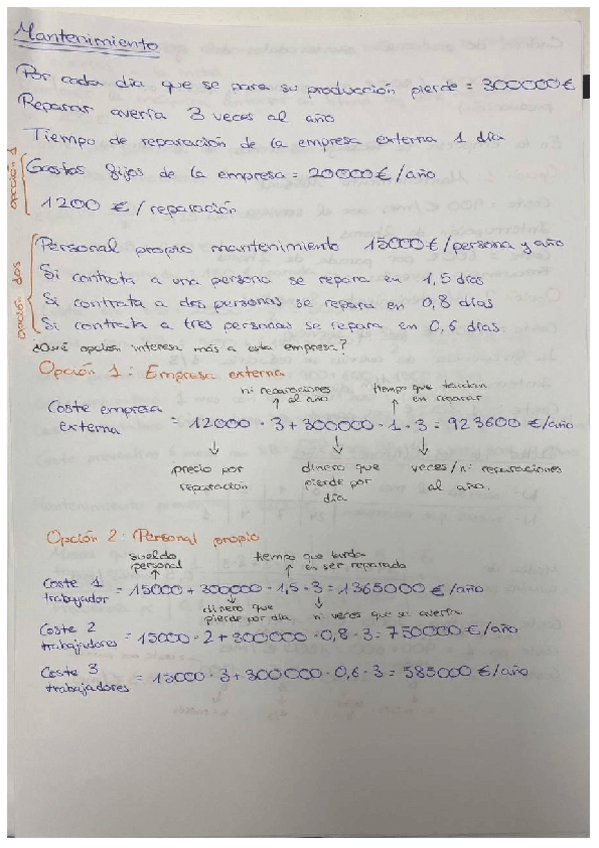 Mantenimiento
Por cada día que se para su producción pierde = 300000€
Reparar avería 3 veces al año
Tiempo de reparación de la empresa externa 1 día
opción 1
Gastos fijos de la empresa = 20000€/año
1200 €/reparación
opción dos
Personal propio mantenimiento 15000€/persona y año
Si contrata a una persona se repara en 1,5 días
Si contrata a dos personas se repara en 0,8 días
Si contrata a tres personas se repara en 0,6 días
¿Qué opción interesa más a esta empresa?
Opción 1: Empresa externa
nº reparaciones al año
tiempo que tardan en reparar
Coste empresa externa = 12000 · 3 + 300000 · 1 · 3 = 923600 €/año
precio por reparación
dinero que pierde por día
veces/nº reparaciones al año.
Opción 2: Personal propio
sueldo personal
tiempo que tarda en ser reparado
Coste 1 trabajador = 15000 + 300000 · 1,5 · 3 = 1365000 €/año
dinero que pierde por día
nº veces que se avería
Coste 2 trabajadores = 15000 · 2 + 300000 · 0,8 · 3 = 750000 €/año
Coste 3 trabajadores = 15000 · 3 + 300000 · 0,6 · 3 = 585000 €/año